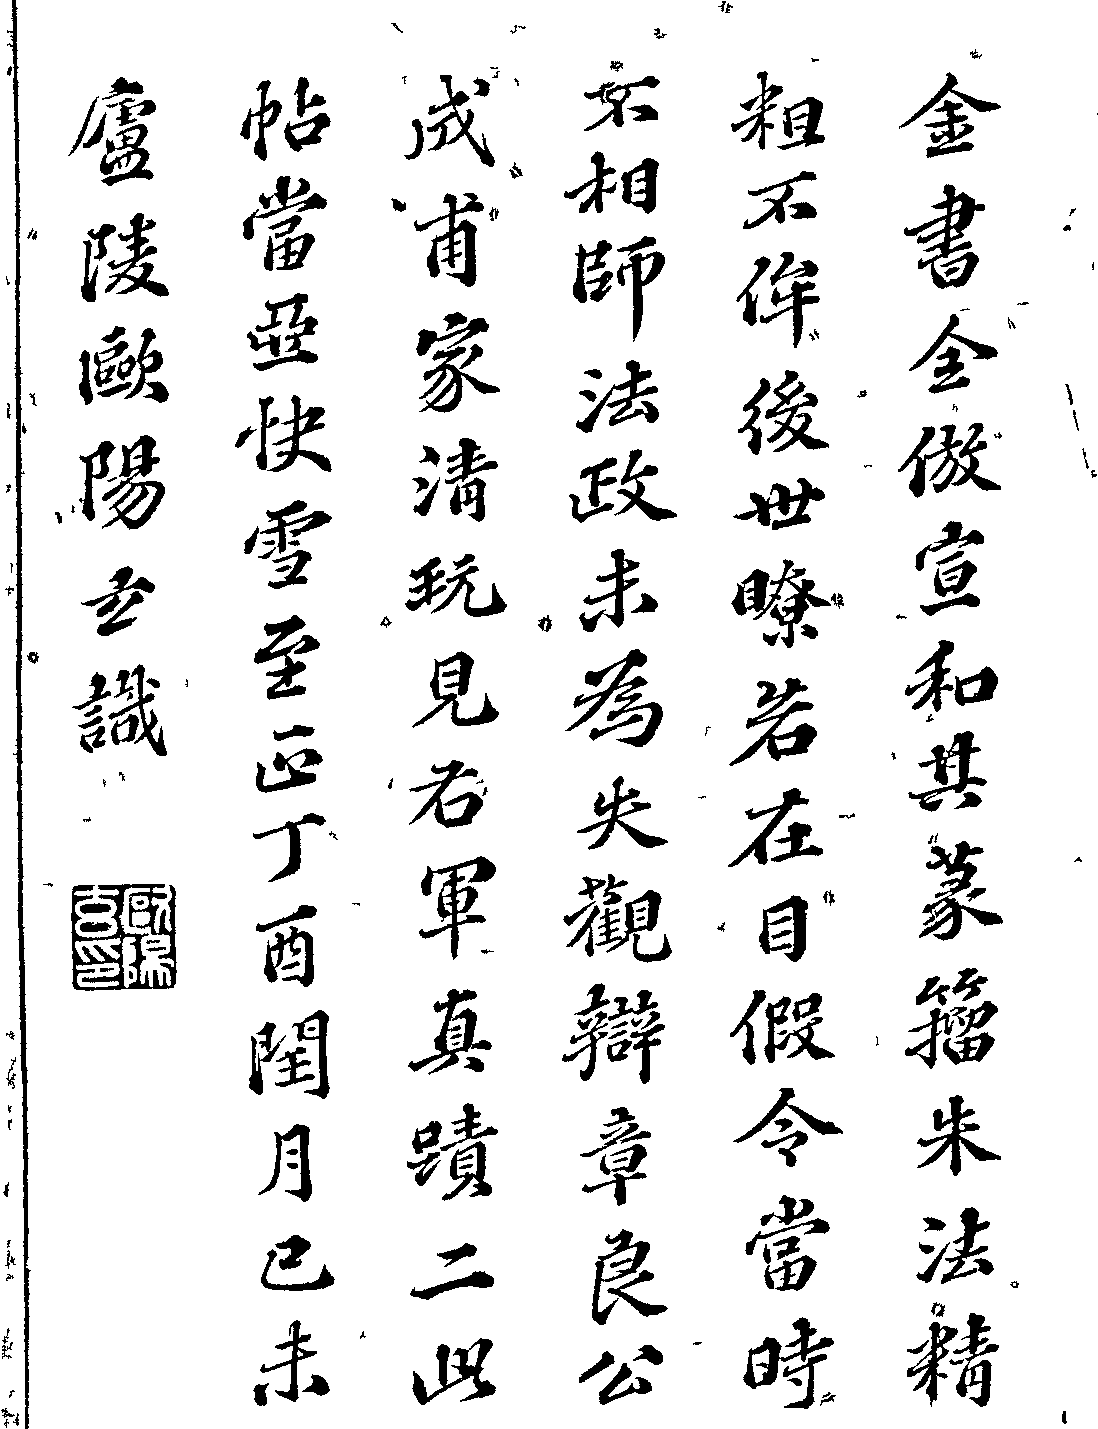 金書全倣宣和其篆籀朱法精
粗不侔後世瞭若在目假令當時
不相師法政未為失觀辯章良公
成甫家清玩見右軍真蹟二此
帖當亞快雪至正丁酉閏月己未
廬陵歐陽玄識
歐陽玄印